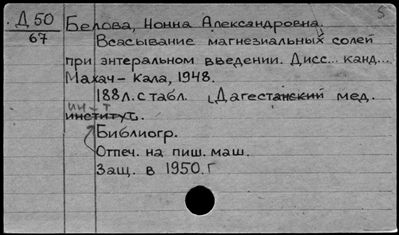 Д 50
67
5
Белова, Нонна Александровна.
Всасывание магнезиальных солей
при энтеральном введении. Дисс... канд...
Махач-Кала, 1948.
188л. с табл. Дагестанский мед.
ин-т
институт.
Библиогр.
Отпеч. на пиш. маш.
Защ. в 1950.г